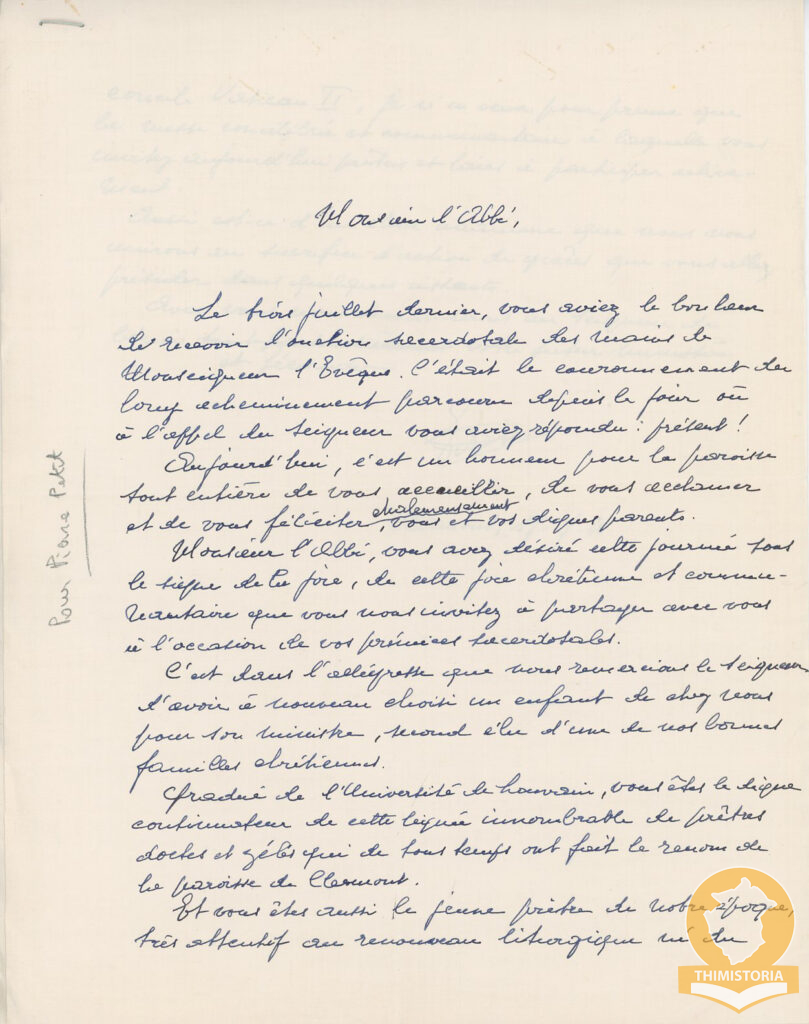 Monsieur l'Abbé,
Le trois juillet dernier, vous aviez le bonheur
de recevoir l'onction sacerdotale des mains de
Monseigneur l'Evêque. C'était le couronnement du
long acheminement parcouru depuis le jour où
à l'appel du Seigneur vous aviez répondu : présent !
Aujourd'hui, c'est un honneur pour la paroisse
tout entière de vous accueillir, de vous acclamer
et de vous féliciter chaleureusement, vous et vos dignes parents.
Monsieur l'Abbé, vous avez désiré cette journée sous
le signe de la joie, de cette joie chrétienne et commu-
nautaire que vous nous invitez à partager avec vous
à l'occasion de vos prémices sacerdotales.
C'est dans l'allégresse que nous remercions le Seigneur
d'avoir à nouveau choisi un enfant de chez nous
pour son ministre, second élu d'une de nos bonnes
familles chrétiennes.
Gradué de l'Université de Louvain, vous êtes le digne
continuateur de cette lignée innombrable de prêtres
doctes et zélés qui de tous temps ont fait le renom de
la paroisse de Clermont.
Et vous êtes aussi le jeune prêtre de notre époque,
très attentif au renouveau liturgique né du
Pour Pierre Petit
THIMISTORIA